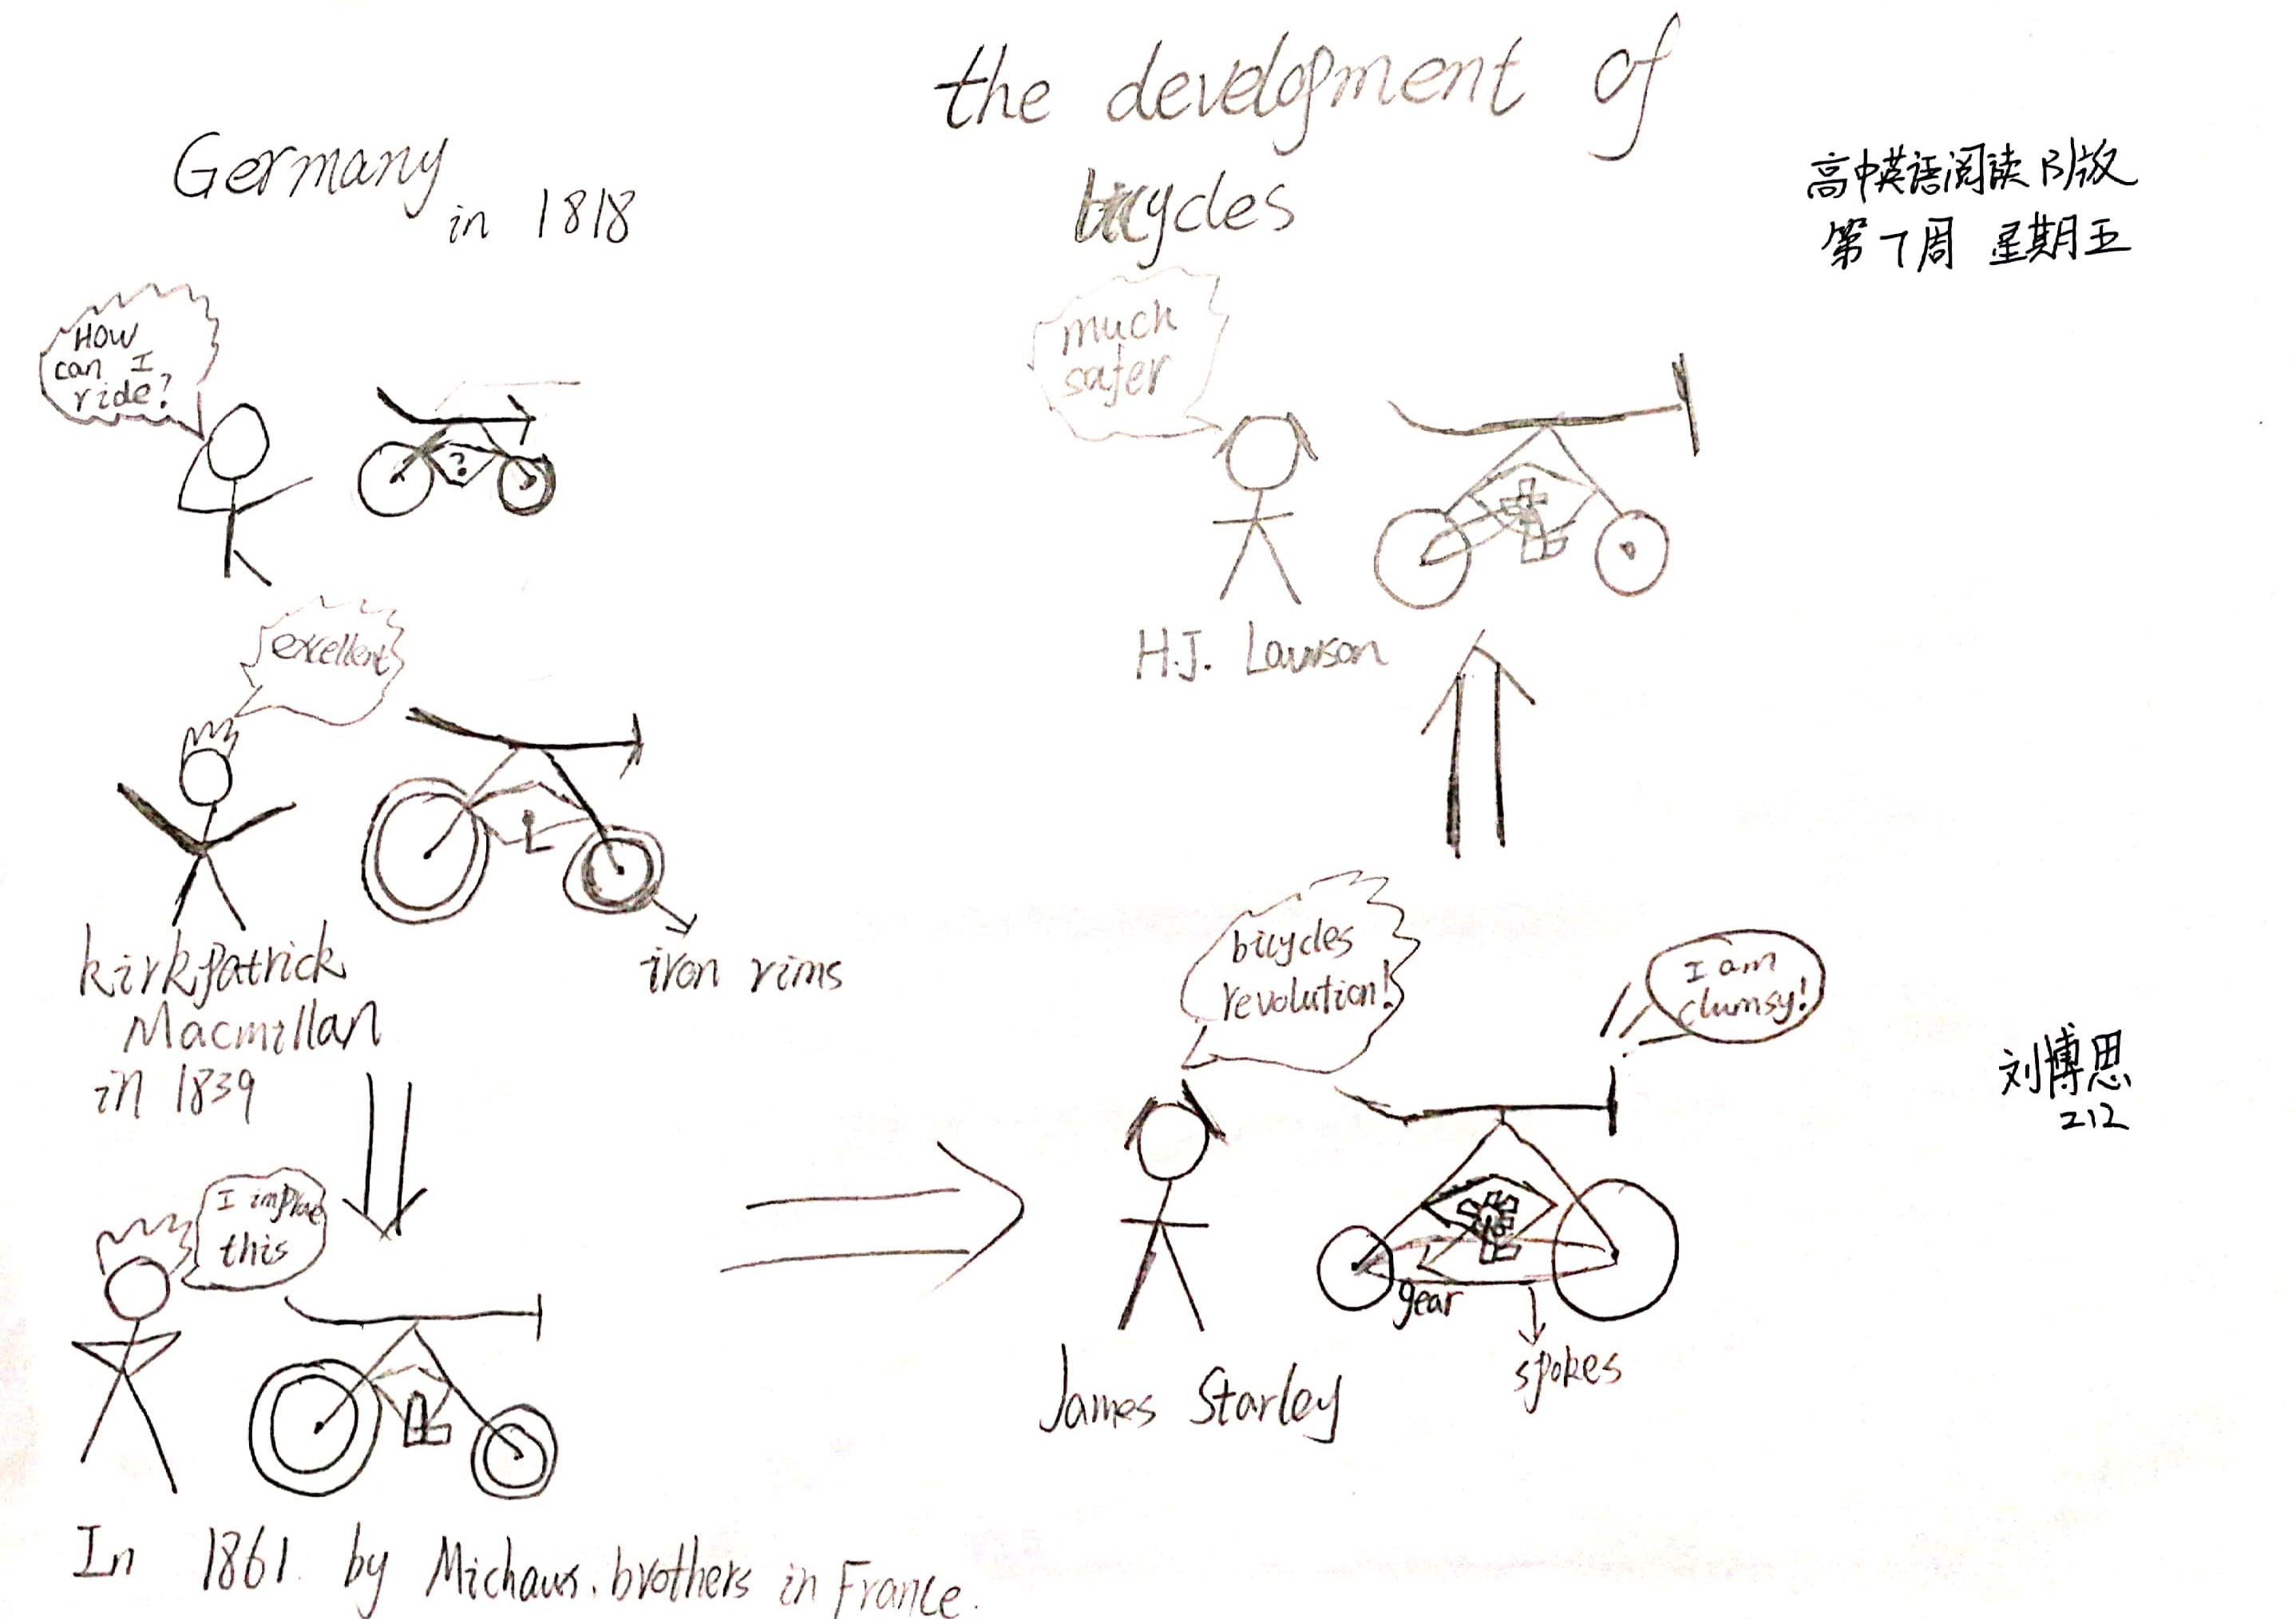 the development of
bicycles
高中英语阅读B版
第7周 星期五
Germany
in 1818
HOW
can I
ride?
?
excellent
kirkpatrick
Macmillan
in 1839
iron rims
I improve
this
In 1861. by Michaux. brothers in France.
bicycles
revolution!
I am
clumsy!
gear
spokes
James Starley
much
safer
H.J. Lawson
刘博思
212